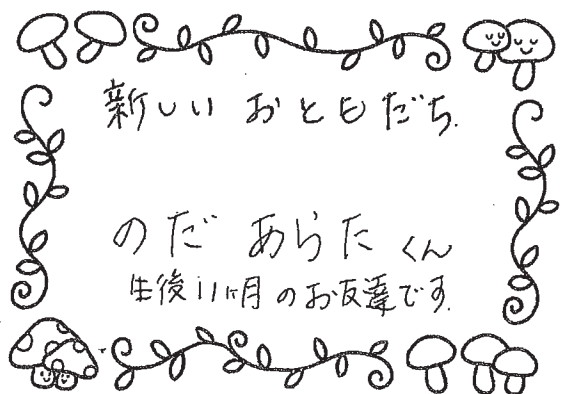 新しい おともだち.
のだ あらた くん
生後11ヶ月 のお友達です.